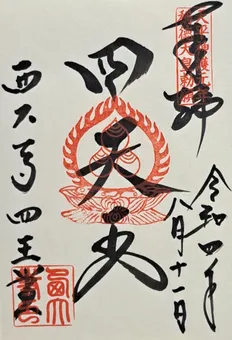 奉拝
令和四年
八月十一日
四天王
西大寺 四王堂